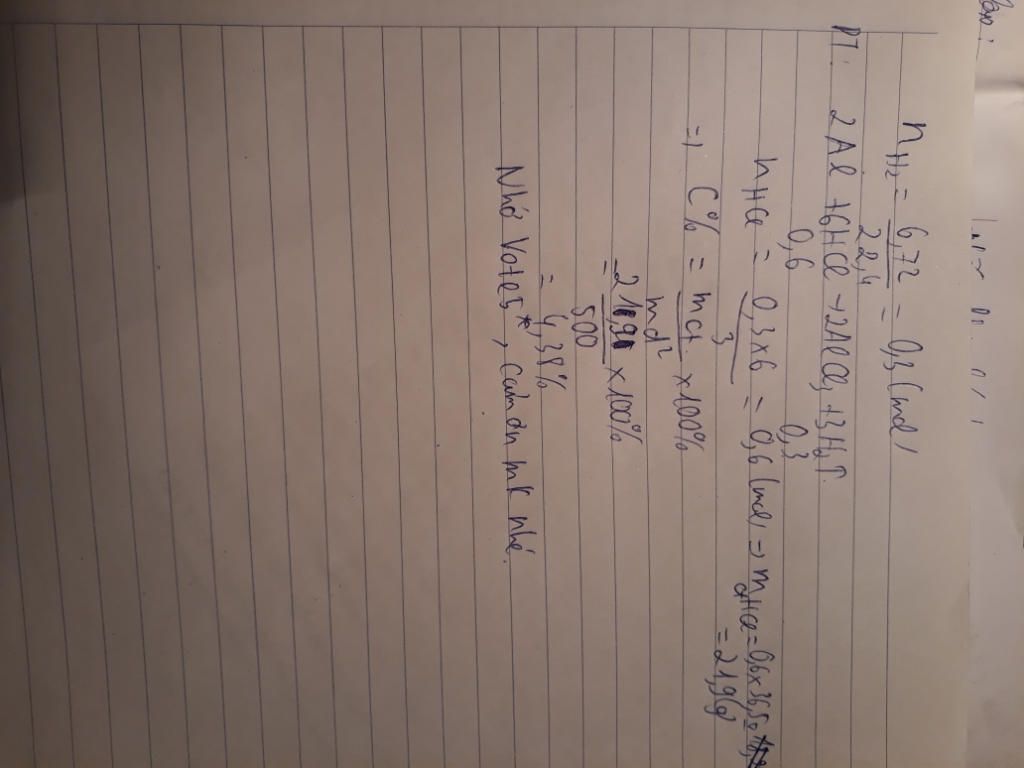 n H2 = 6,72 / 22,4 = 0,3 (mol)
PT: 2Al + 6HCl → 2AlCl3 + 3H2↑
0,6 0,3
nHCl = 0,3x6 / 3 = 0,6 (mol) → mctHCl = 0,6x36,5
= 21,9g
=) C% = mct / md2 x100%
= 21,9 / 500 x100%
= 4,38%
Nhớ Votes*, cảm ơn mk nhé.